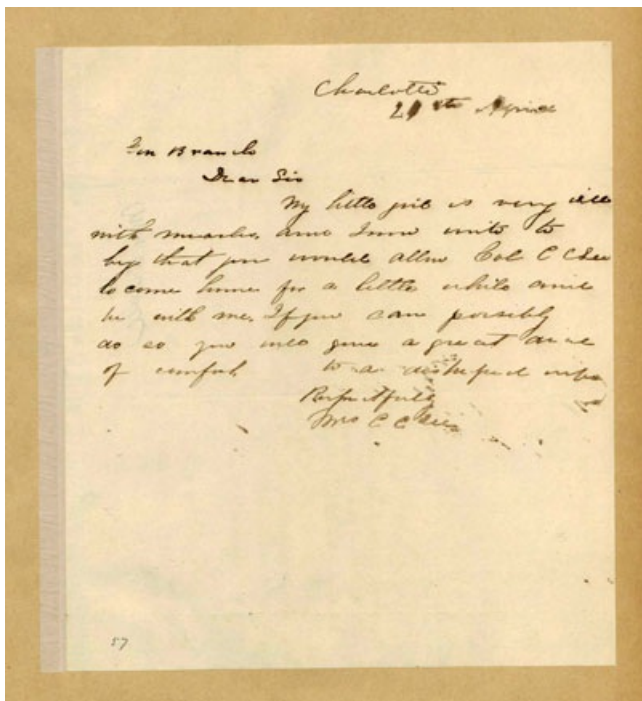 Charlotte
2 th April
Gen Branch
Dear Sir
My little girl is very ill
with measles and I now write to
beg that you would allow Col C C Lee
to come home for a little while and
be with me. If you can possibly
do so you will give a great deal
of comfort to a wife
Respectfully
Mrs C C Lee
57